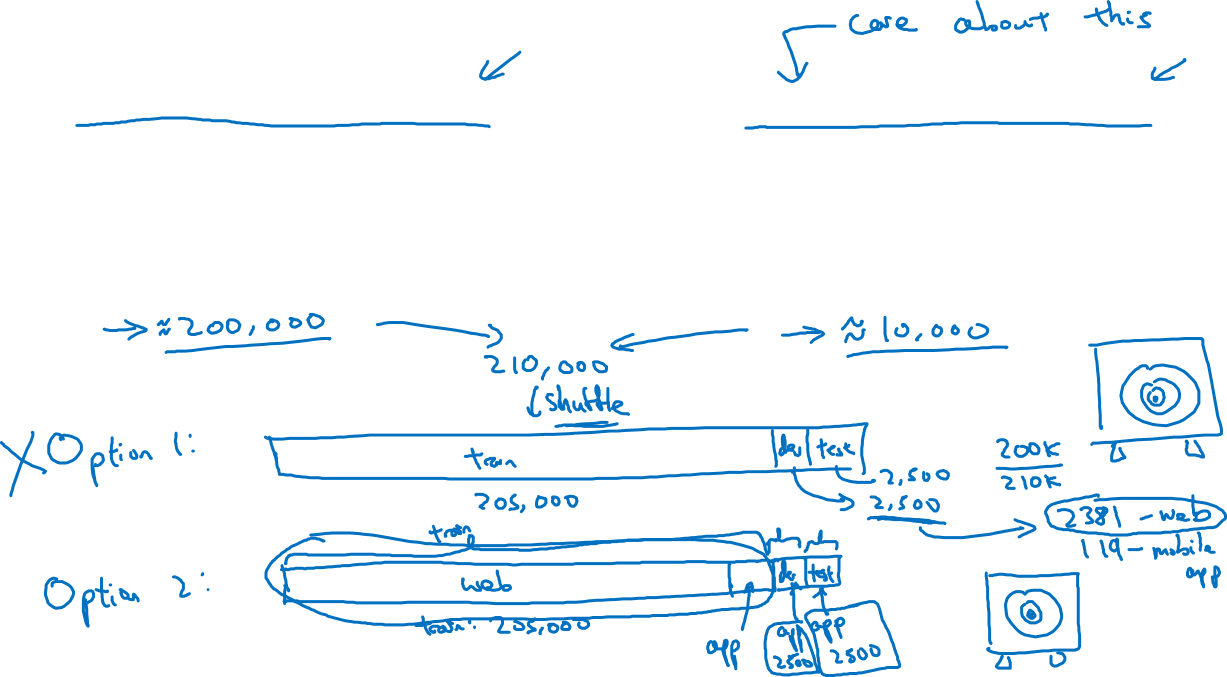 care about this
≈200,000
≈10,000
210,000
shuttle
Option 1:
train
dev
test
205,000
2,500
2,500
200K
210K
2381 - web
119 - mobile
app
train
Option 2:
web
dev
test
train: 205,000
app
app
2500
app
2500